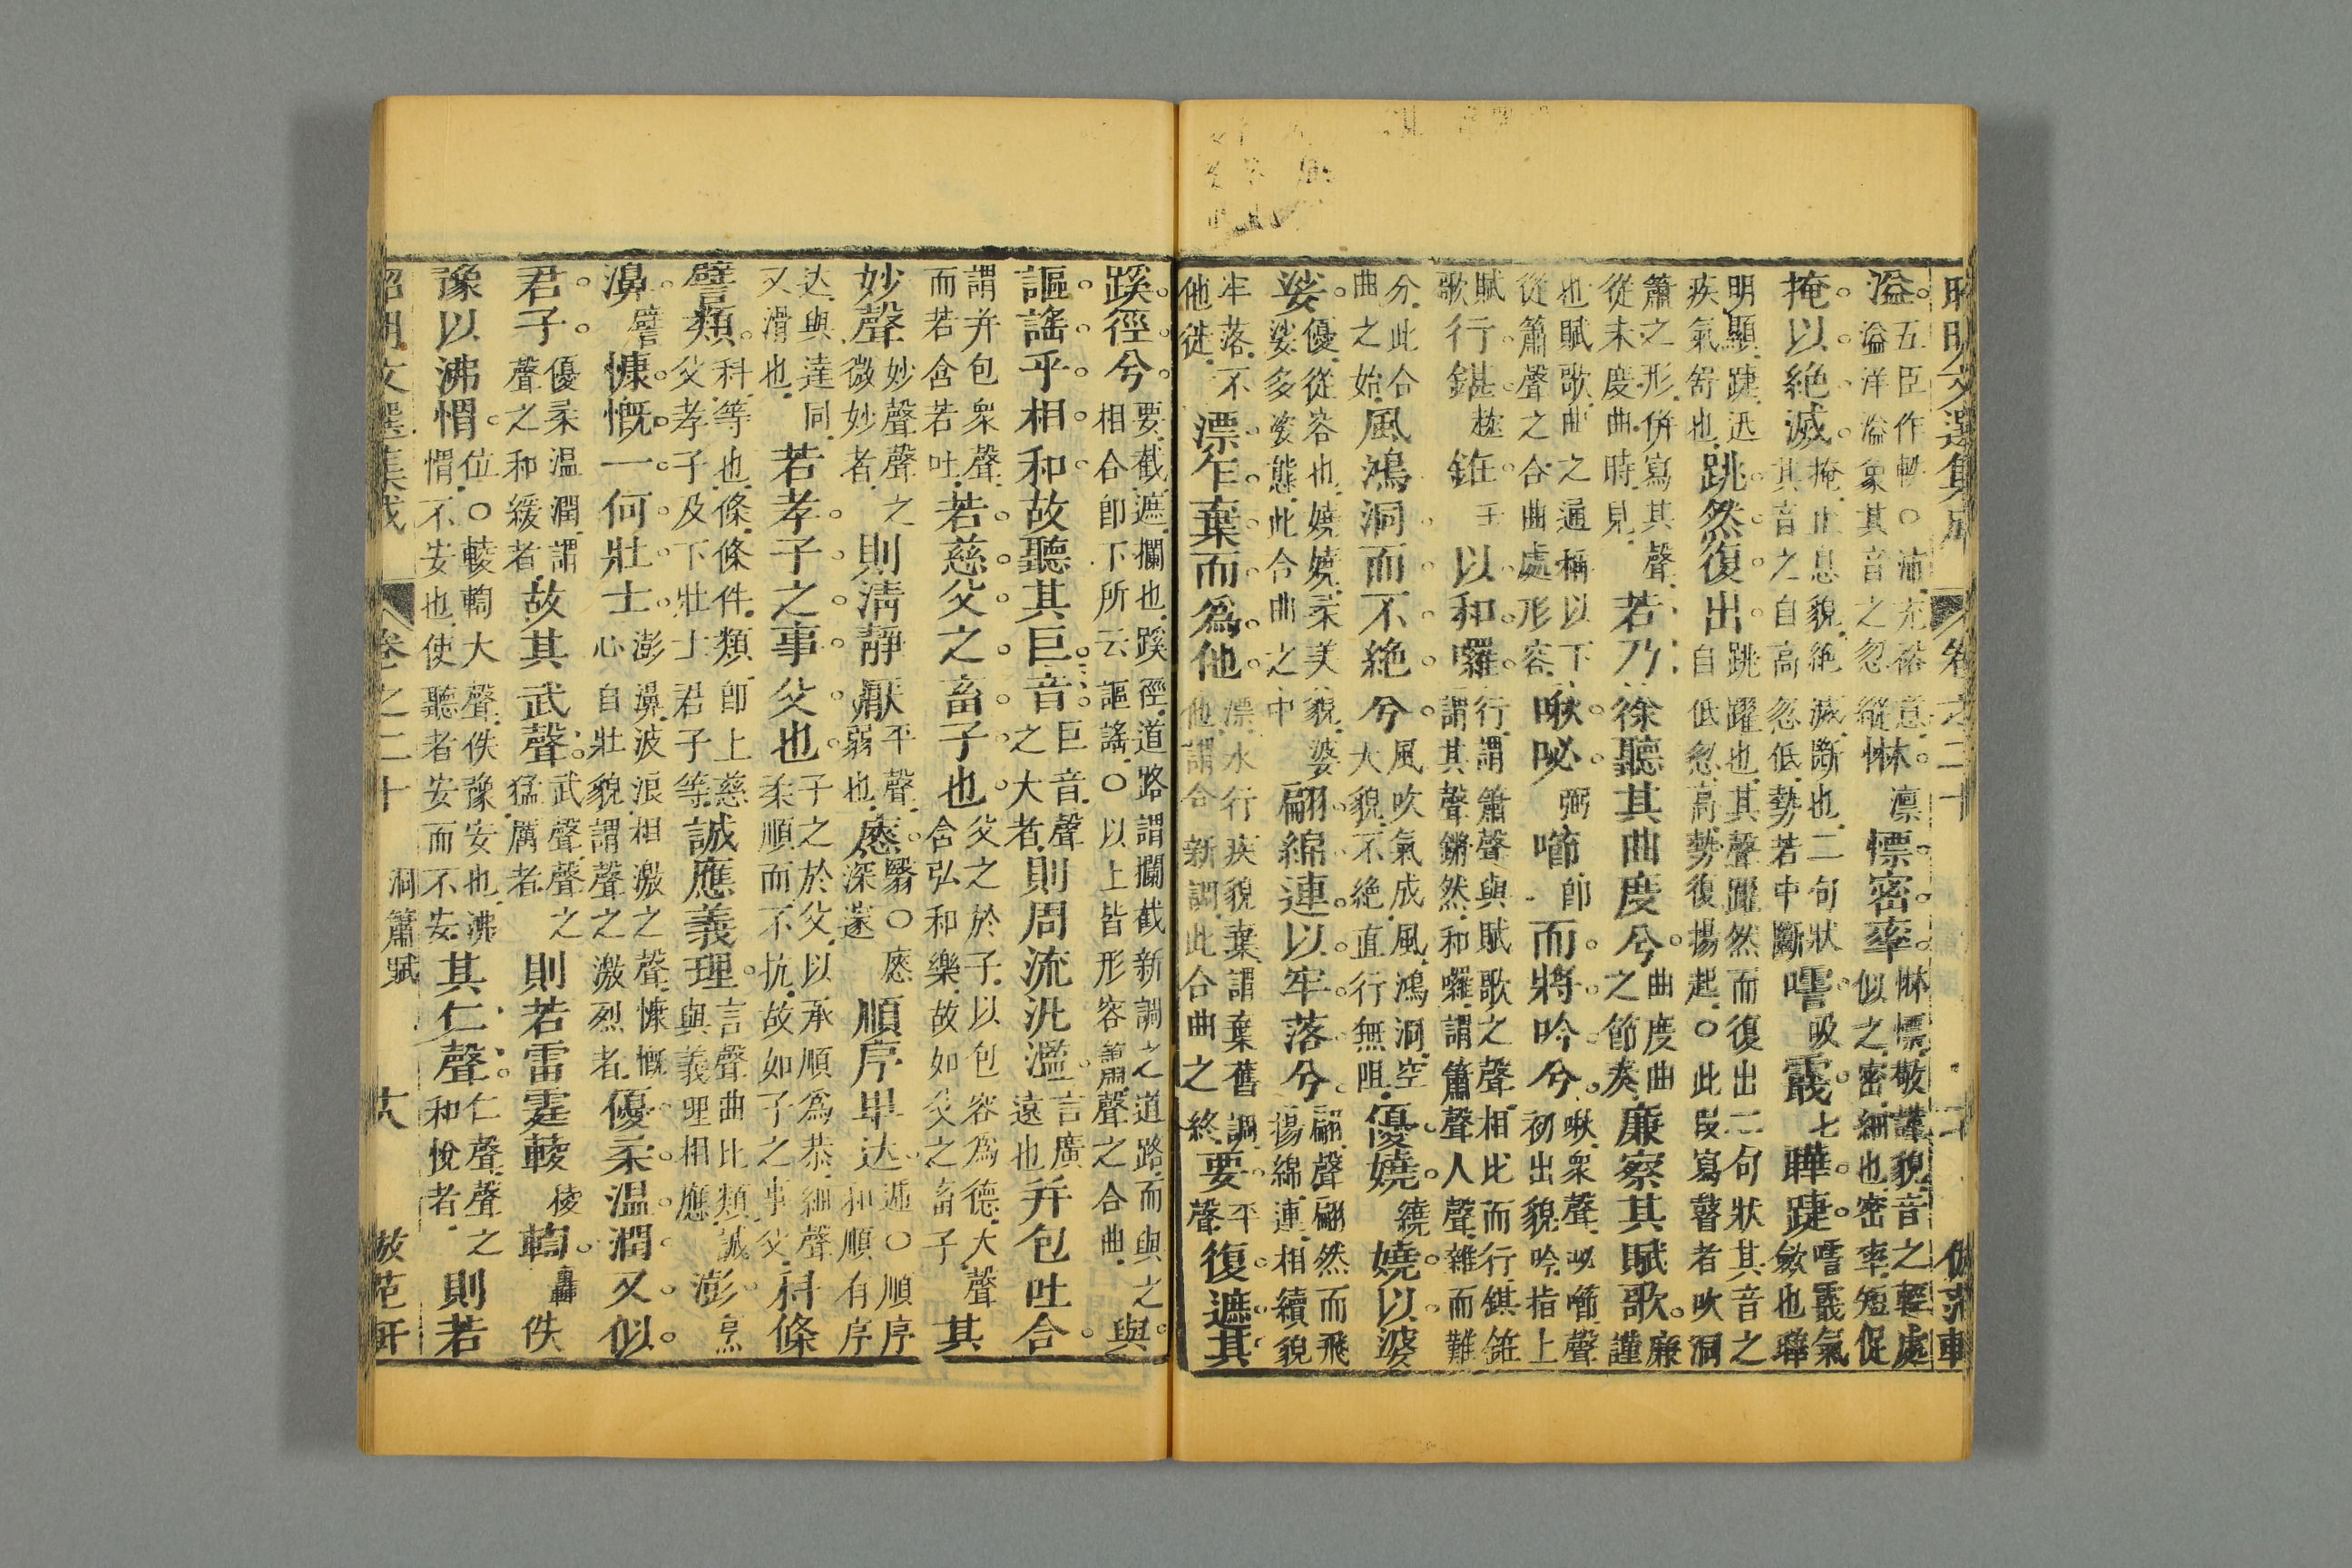 昭明文選集成 卷之二十
溢五臣作軼○沛充裕意溢洋溢象其音之忽縱惏凛慄密率惏慄敬謹貌音之輕處似之密細也密率短促
掩以絕滅掩止息貌絕滅斷也二句狀其音之自高忽低勢若中斷㗱吸霵七曄踕㗱霵氣斂也曄
明顯踕迅疾氣舒也跳然復出跳躍也其聲躍然而復出二句狀其音之自低忽高勢復揚起○此段寫瞽者吹洞
簫之形併寫其聲從未度曲時見若乃徐聽其曲度兮曲度曲之節奏廉察其賦歌廉謹
也賦歌曲之通稱以下從簫聲之合曲處形容啾咇弼㘉即而將吟兮啾衆聲咇㘉聲初出貌吟指上
賦歌行鍖䤴以和囉行謂簫聲與賦歌之聲相比而行鍖䤴謂其聲鏘然和囉謂簫聲人聲雜而難
分此合曲之始風鴻洞而不絕兮風吹氣成風鴻洞空大貌不絕直行無阻優嬈繞嬈以婆
娑優從容也嬈嬈柔美貌婆娑多姿態此合曲之中翩綿連以牢落兮翩聲翩然而飛揚綿連相續貌
牢落不他徙漂乍棄而爲他漂水行疾貌棄謂棄舊調他謂合新調此合曲之終要平聲復遮其
蹊徑兮要截遮攔也蹊徑道路謂攔截新調之道路而與之相合卽下所云謳謠○以上皆形容簫聲之合曲與
謳謠乎相和故聽其巨音巨音聲之大者則周流氾濫言廣遠也并包吐含
謂并包衆聲而若含若吐若慈父之畜子也父之於子以包容爲德大聲含弘和樂故如父之畜子其
妙聲妙聲聲之微妙者則淸靜厭平聲弱也㥷翳○㥷深邃順序卑达逓○順序和順有序
达與達同又滑也若孝子之事父也子之於父以承順爲恭細聲柔順而不抗故如子之事父科條
譬類科等也條條件類卽上慈父孝子及下壯士君子等誠應義理言聲曲比類誠與義理相應澎烹
濞譬慷慨一何壯士澎濞波浪相激之聲慷慨心自壯貌謂聲之激烈者優柔溫潤又似
君子優柔溫潤謂聲之和緩者故其武聲武聲聲之猛厲者則若雷霆輘稜輷轟佚
豫以沸㥜位○輘輷大聲佚豫安也沸㥜不安也使聽者安而不安其仁聲仁聲聲之和悅者則若
昭明文選集成 卷之二十 洞簫賦